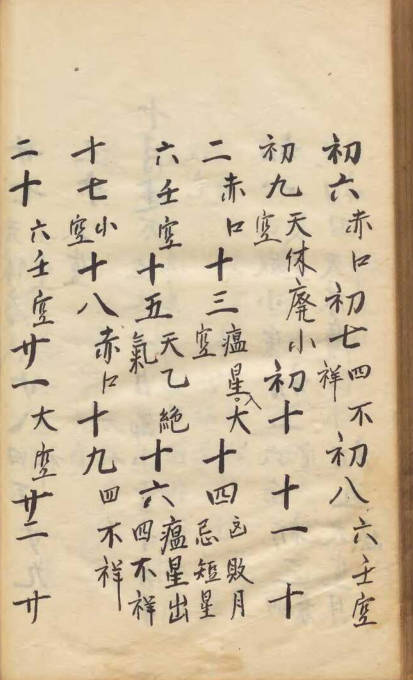 初六赤口初七四不祥初八六壬空
初九天休廢小空初十十一十
二赤口十三瘟星入大空十四凶敗月忌短星
六壬空十五天乙絕氣十六瘟星出四不祥
十七小空十八赤口十九四不祥
二十六壬空廿一大空廿二廿